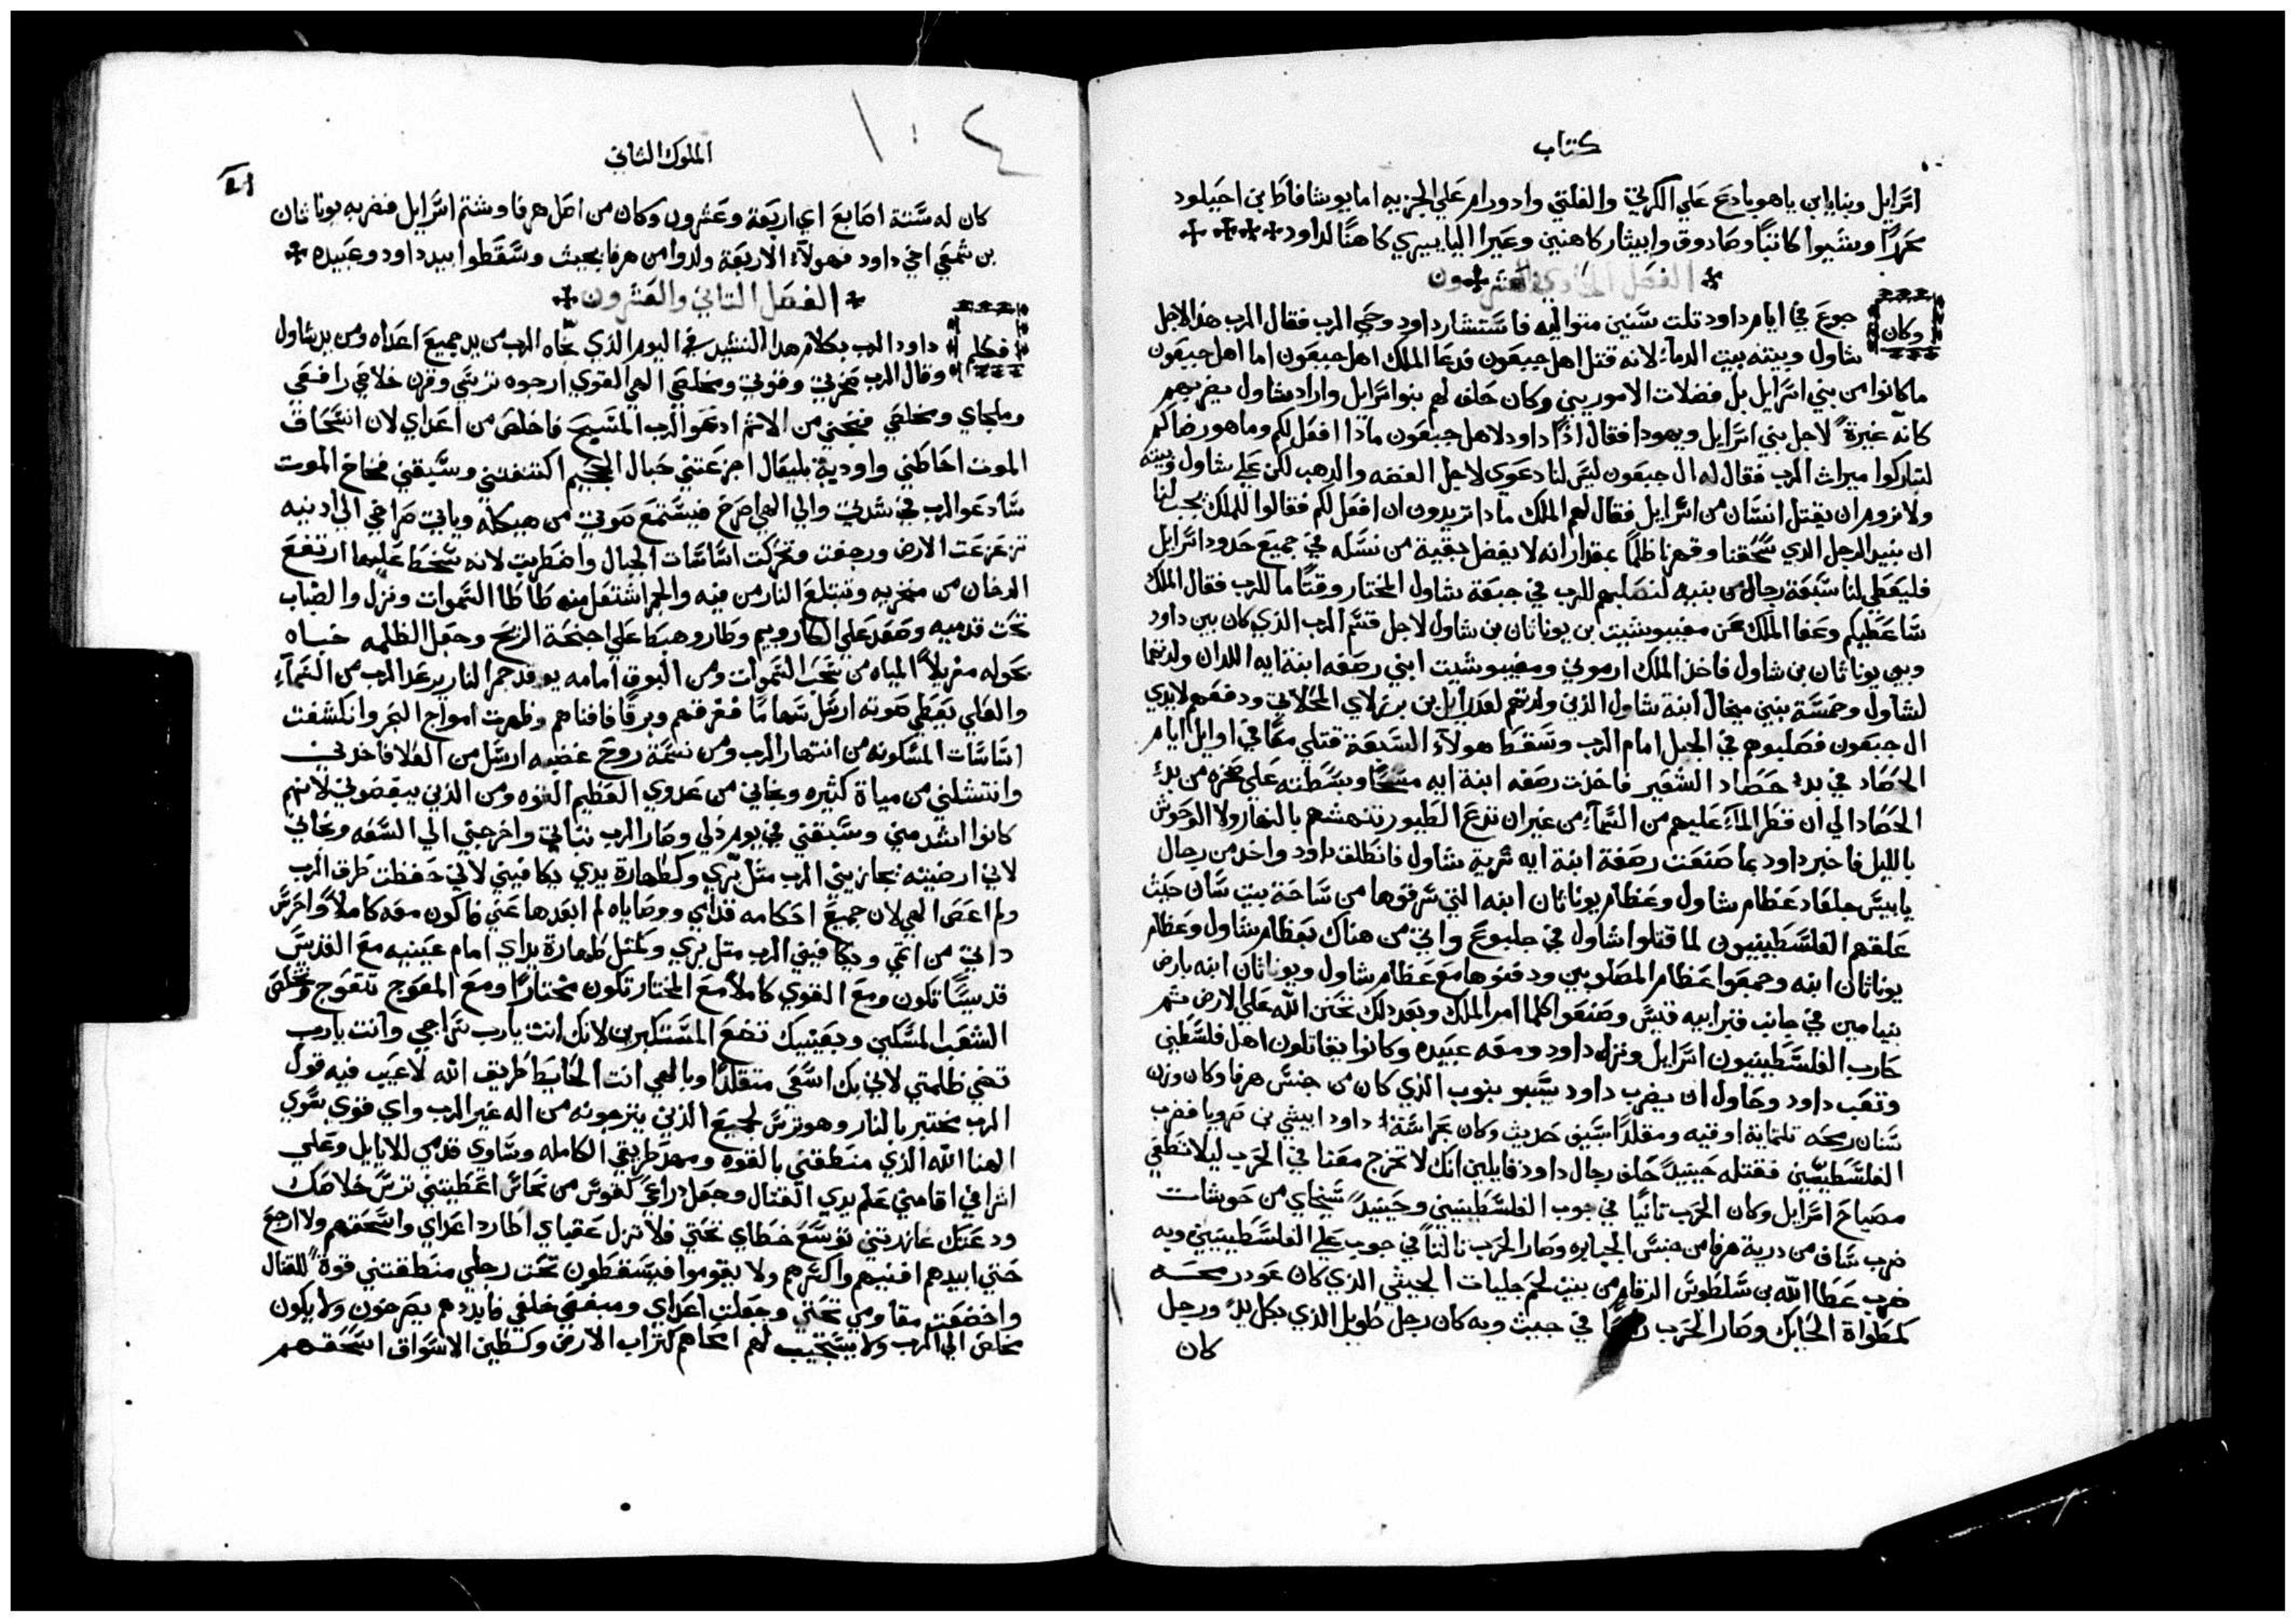 كتاب
اسرايل وبنايا ابن ياهويادع علي الكرتي والفلتي وادورام علي الجزيه اما يوشافاط بن احيلود
وشيوا كاتبًا وصادوق وابيثار كاهنين وعيرا اليابيري كاهنًا لداود
الفصل الحادي والعشرون
وكان
جوع في ايام داود تلت سنين متواليه فاستشار داود وحي الرب فقال الرب هذا لاجل
شاول وبيته بيت الدماء لانه قتل اهل جبعون فدعا الملك اهل جبعون اما اهل جبعون
ما كانوا من بني اسرايل بل فضلات الاموريين وكان حلف لهم بنو اسرايل واراد شاول يضربهم
كانه غيرةً لاجل بني اسرايل ويهودا فقال اذًا داود لاهل جبعون ماذا افعل لكم وما هو رضاكم
لتباركوا ميراث الرب فقال له ال جبعون ليس لنا دعوي لاجل الفضه والدهب لكن علي شاول وبيته
ولا نروم ان يقتل انسان من اسرايل فقال لهم الملك ماذا تريدون ان افعل لكم فقالوا للملك يجب لنا
ان نبيد الرجل الدي سحقنا وقهرنا ظلمًا بمقدار انه لا يفضل بقية من نسله في جميع حدود اسرايل
فليعطي لنا سبعة رجال من بنيه لنصلبهم للرب في جبعة شاول المختار وقتًا ما للرب فقال الملك
ساعطيكم وعفا الملك عن مفيبوشيت بن يوناثان بن شاول لاجل قسم الرب الذي كان بين داود
وبين يوناثان بن شاول فاخذ الملك ارموني ومفيبوشت ابني رصفه ابنة ايه اللدان ولدتهما
لشاول وخمسة بنين ميخال ابنة شاول الذين ولدتهم لعدرايل بن برزلاي المحلاتي ودفعهم لايدي
ال جبعون فصلبوهم في الجبل امام الرب وسقط هولاء السبعة قتلي معًا في اوايل ايام
الحصاد في بدء حصاد الشعير فاخذت رصفه ابنة ايه مسحًا وبسطته علي صخره من بدء
الحصاد الي ان قطر الماء عليهم من السماء من غير ان تدع الطيور تنهشهم بالنهار ولا الوحوش
بالليل فاخبر داود بما صنعت رصفة ابنة ايه سرية شاول فانطلق داود واخد من رجال
يابيس جلعاد عظام شاول وعظام يوناثان ابنه التي سرقوها من ساحة بيت سان حيث
علقهم الفلسطينيون لما قتلوا شاول في جلبوع واتي من هناك بعظام شاول وعظام
يوناثان ابنه وجمعوا عظام المصلوبين ودفنوها مع عظام شاول ويوناثان ابنه بارض
بنيامين في جانب قبر ابيه قيس وصنعوا كلما امر الملك وبعد دلك تحنن الله علي الارض ثم
حارب الفلسطينيون اسرايل ونزل داود ومعه عبيده وكانوا يقاتلون اهل فلسطين
وتعب داود وحاول ان يضرب داود يسبيو بنوب الذي كان من جنس هرفا وكان وزن
سنان رمحه تلتماية اوقيه ومقلدًا بسيف حديث وكان بحراسة داود ابيشي بن صرويا فضرب
الفلسطيني فقتله حينيدً حلف رجال داود قايلين انك لا تخرج معنا في الحرب ليلا تطفي
مصباح اسرايل وكان الحرب تانيًا في جوب الفلسطينيين وحينيدً سبخاي من حوشات
ضرب ساف من درية هرفا من جنس الجبابره وصار الحرب ثالثاً في جوب علي الفلسطينيين وبه
ضرب عطا الله بن سلطوس الرقام من بيت لحم جليات الجيثي الذي كان عود رمحه
كمطواة الحايك وصار الحرب في جيث وبه كان رجل طويل الذي بكل يدً ورجل
كان
١٠٤
الملوك الثاني
كان له ستة اصابع اي اربعة وعشرون وكان من اصل هرفا وشتم اسرايل فضربه يوناثان
بن شمعي اخي داود فهولاء الاربعة ولدوا من هرفا بجيث وسقطوا بيد داود وعبيده
الفصل التاني والعشرون
فكلم
داود الرب بكلام هدا النشيد في اليوم الذي نجاه الرب من يد جميع اعداه ومن يد شاول
وقال الرب صخرتي وقوتي ومخلصي الهي القوي ارجوه ترسي وقرن خلاصي رافعي
وملجاي ومخلصي فنجني من الاثم ادعو الرب المسبح فاخلص من اعداي لان انسحاق
الموت احاطني واودية بليعال اجزعتني حبال الجحيم اكتنفتني وسبقتني فخاخ الموت
سادعو الرب في شدتي والي الهي اصرخ فيستمع صوتي من هيكله وياتي صراخي الي ادنيه
تزعزعت الارض ورجفت وتحركت اساسات الجبال واضطربت لانه سخط عليها ارتفع
الدخان من منخريه وتبتلع النار من فيه والجمر اشتعل منه طاطا السموات ونزل والضباب
تحت قدميه وصعد علي الكاروبيم وطار وهبط علي اجنحة الريح وجعل الظلمه خباه
بحوله مغربلاً المياه من سحب السموات ومن البوق امامه يوقد جمر النار يرعد الرب من السماء
والعلي يعطي صوته ارسل سهامًا ففرقهم وبرقًا فافناهم وظهرت امواج البحر وانكشفت
اساسات المسكونه من انتهار الرب ومن نسمة روح غضبه ارسل من العلا فاخدني
وانتشلني من مياة كثيره ونجاني من عدوي العظيم القوه ومن الذين يبغضوني لانهم
كانوا اشد مني وسبقني في يوم ذلي وصار الرب تباتي واخرجني الي السعه ونجاني
لاني ارضيته يجازيني الرب مثل برّي وكطهارة يدي يكافيني لاني حفظت طرق الرب
ولم اعص الهي لان جميع احكامه قدامي ووصاياه لم ابعدها عني فاكون معه كاملاً واحرس
داتي من اتمي ويكافيني الرب متل بري وكمثل طهارة يداي امام عينيه مع القديس
قديسًا تكون ومع القوي كاملاً مع المختار تكون مختارًا ومع المعوج تتعوج وتخلص
الشعب المسكين وبعينيك تضع المستكبرين لانك انت يا رب سراجي وانت يا رب
تضي ظلمتي لاني بك اسعي متقلدًا وبالهي انت الحايط طريق الله لا عيب فيه قول
الرب مختبر بالنار وهو ترس لجميع الذين يترجونه من اله غير الرب واي قوي يقوي
الهنا الله الذي منطقني بالقوه ومهد طريقي الكامله وساوي قدمي للايايل وعلي
اشرافي اقامني علم يدي القتال وجعل دراعيّ كقوس من نحاس اعطيتني ترس خلاصك
ودعتك عاندتني توسع خطاي تحتي فلا تزل عقباي اطارد اعداي واسحقهم ولا ارجع
حتي ابيدهم افنيهم واكسرهم ولا يقوموا فيسقطون تحت رجلي منطقتني قوةً للقتال
واخضعت مقاومي تحتي وجعلت اعداي ومبغضي خلفي فابددهم يصرخون ولا يكون
مخلص الي الرب ولا يستجيب لهم امحاهم كتراب الارض وكطين الاسواق اسحقهم